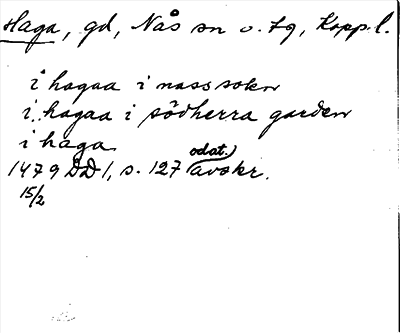 Haga, gd, Nås sn o. tg, Kopp.l.
i hagaa i nass sokn
i hagaa i södherra garden
i haga
1479 DD 1, s. 127 (odat.) avskr.
15/2